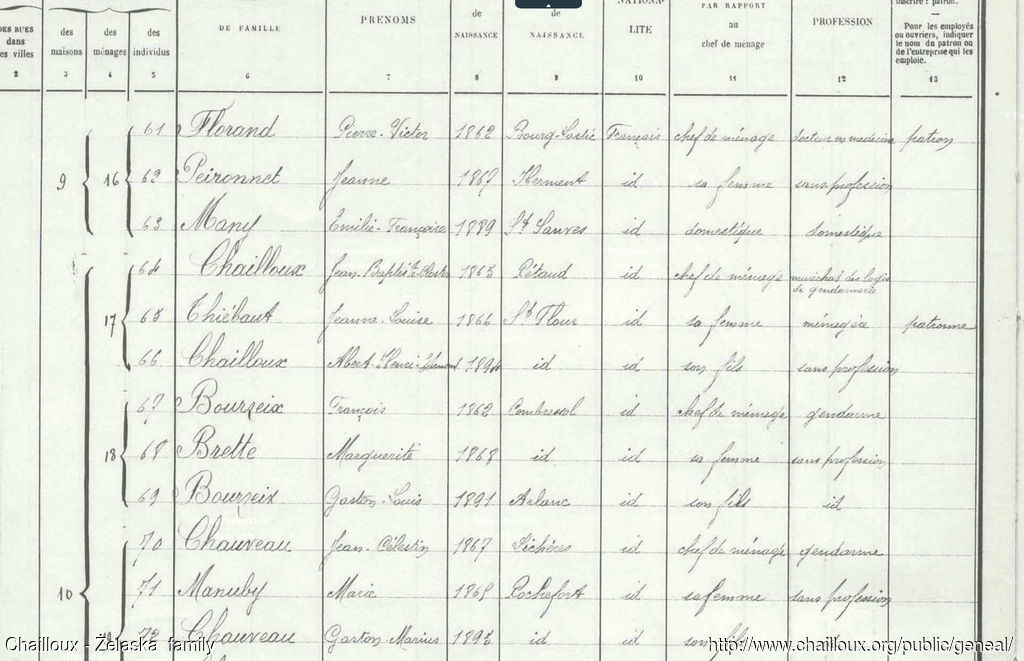 DES RUES dans es villes
des maisons
des ménages
des individus
DE FAMILLE
PRENOMS
de NAISSANCE
de NAISSANCE
NATIONA-
LITE
PAR RAPPORT au chef de ménage
PROFESSION
inscrire : patron.
Pour les employés
ou ouvriers, indiquer
le nom du patron ou
de l'entreprise qui les
emploie.
2 3 4 5 6 7 8 9 10 11 12 13
61 Florand Pierre-Victor 1862 Bourg-Lastic Français chef de ménage docteur en medecine patron
9 16 63 Peironnet Jeanne 1867 Herment id sa femme sans profession
63 Many Emilie-Françoise 1889 St Sauves id domestique domestique
64 Chailloux Jean-Baptiste 1865 Rétaud id chef de ménage maréchal des logis
de gendarmerie
17 65 Thiébaut Jeanne-Louise 1866 St Flour id sa femme ménagère patronne
66 Chailloux Abert-Henri 1894 id id son fils sans profession
67 Bourzeix François 1862 Combressol id chef de ménage gendarme
18 68 Brette Marguerite 1868 id id sa femme sans profession
69 Bourzeix Gaston-Louis 1891 Arlanc id son fils id
70 Chauveau Jean-Célestin 1867 id chef de ménage gendarme
10 71 Manuby Marie 1869 Rochefort id sa femme sans profession
72 Chauveau Gaston-Marius 1895 id id son fils
Chailloux - Zelaska family
http://www.chailloux.org/public/geneal/